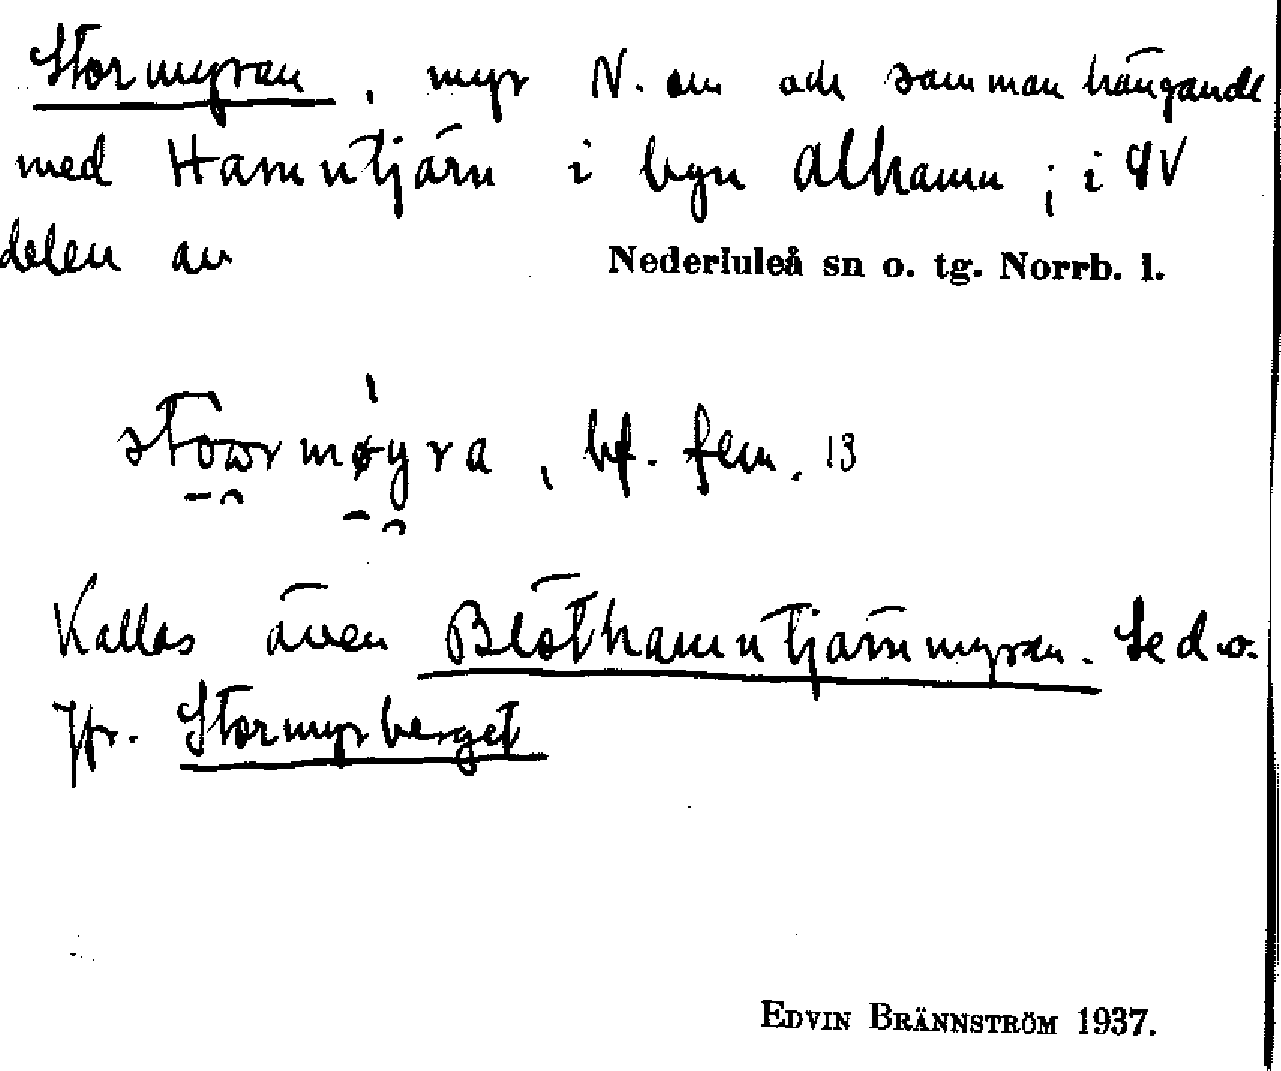 Stormyran, myr N. om och sammanhängande
med Hamntjärn i byn Alhamn; i SV
delen av Nederluleå sn o. tg. Norrb. l.
stowrmøyra, bf. fem. 13
Kallas även Blöthamntjärnmyran. Se d. o.
Jfr. Stormyrberget
EDVIN BRÄNNSTRÖM 1937.